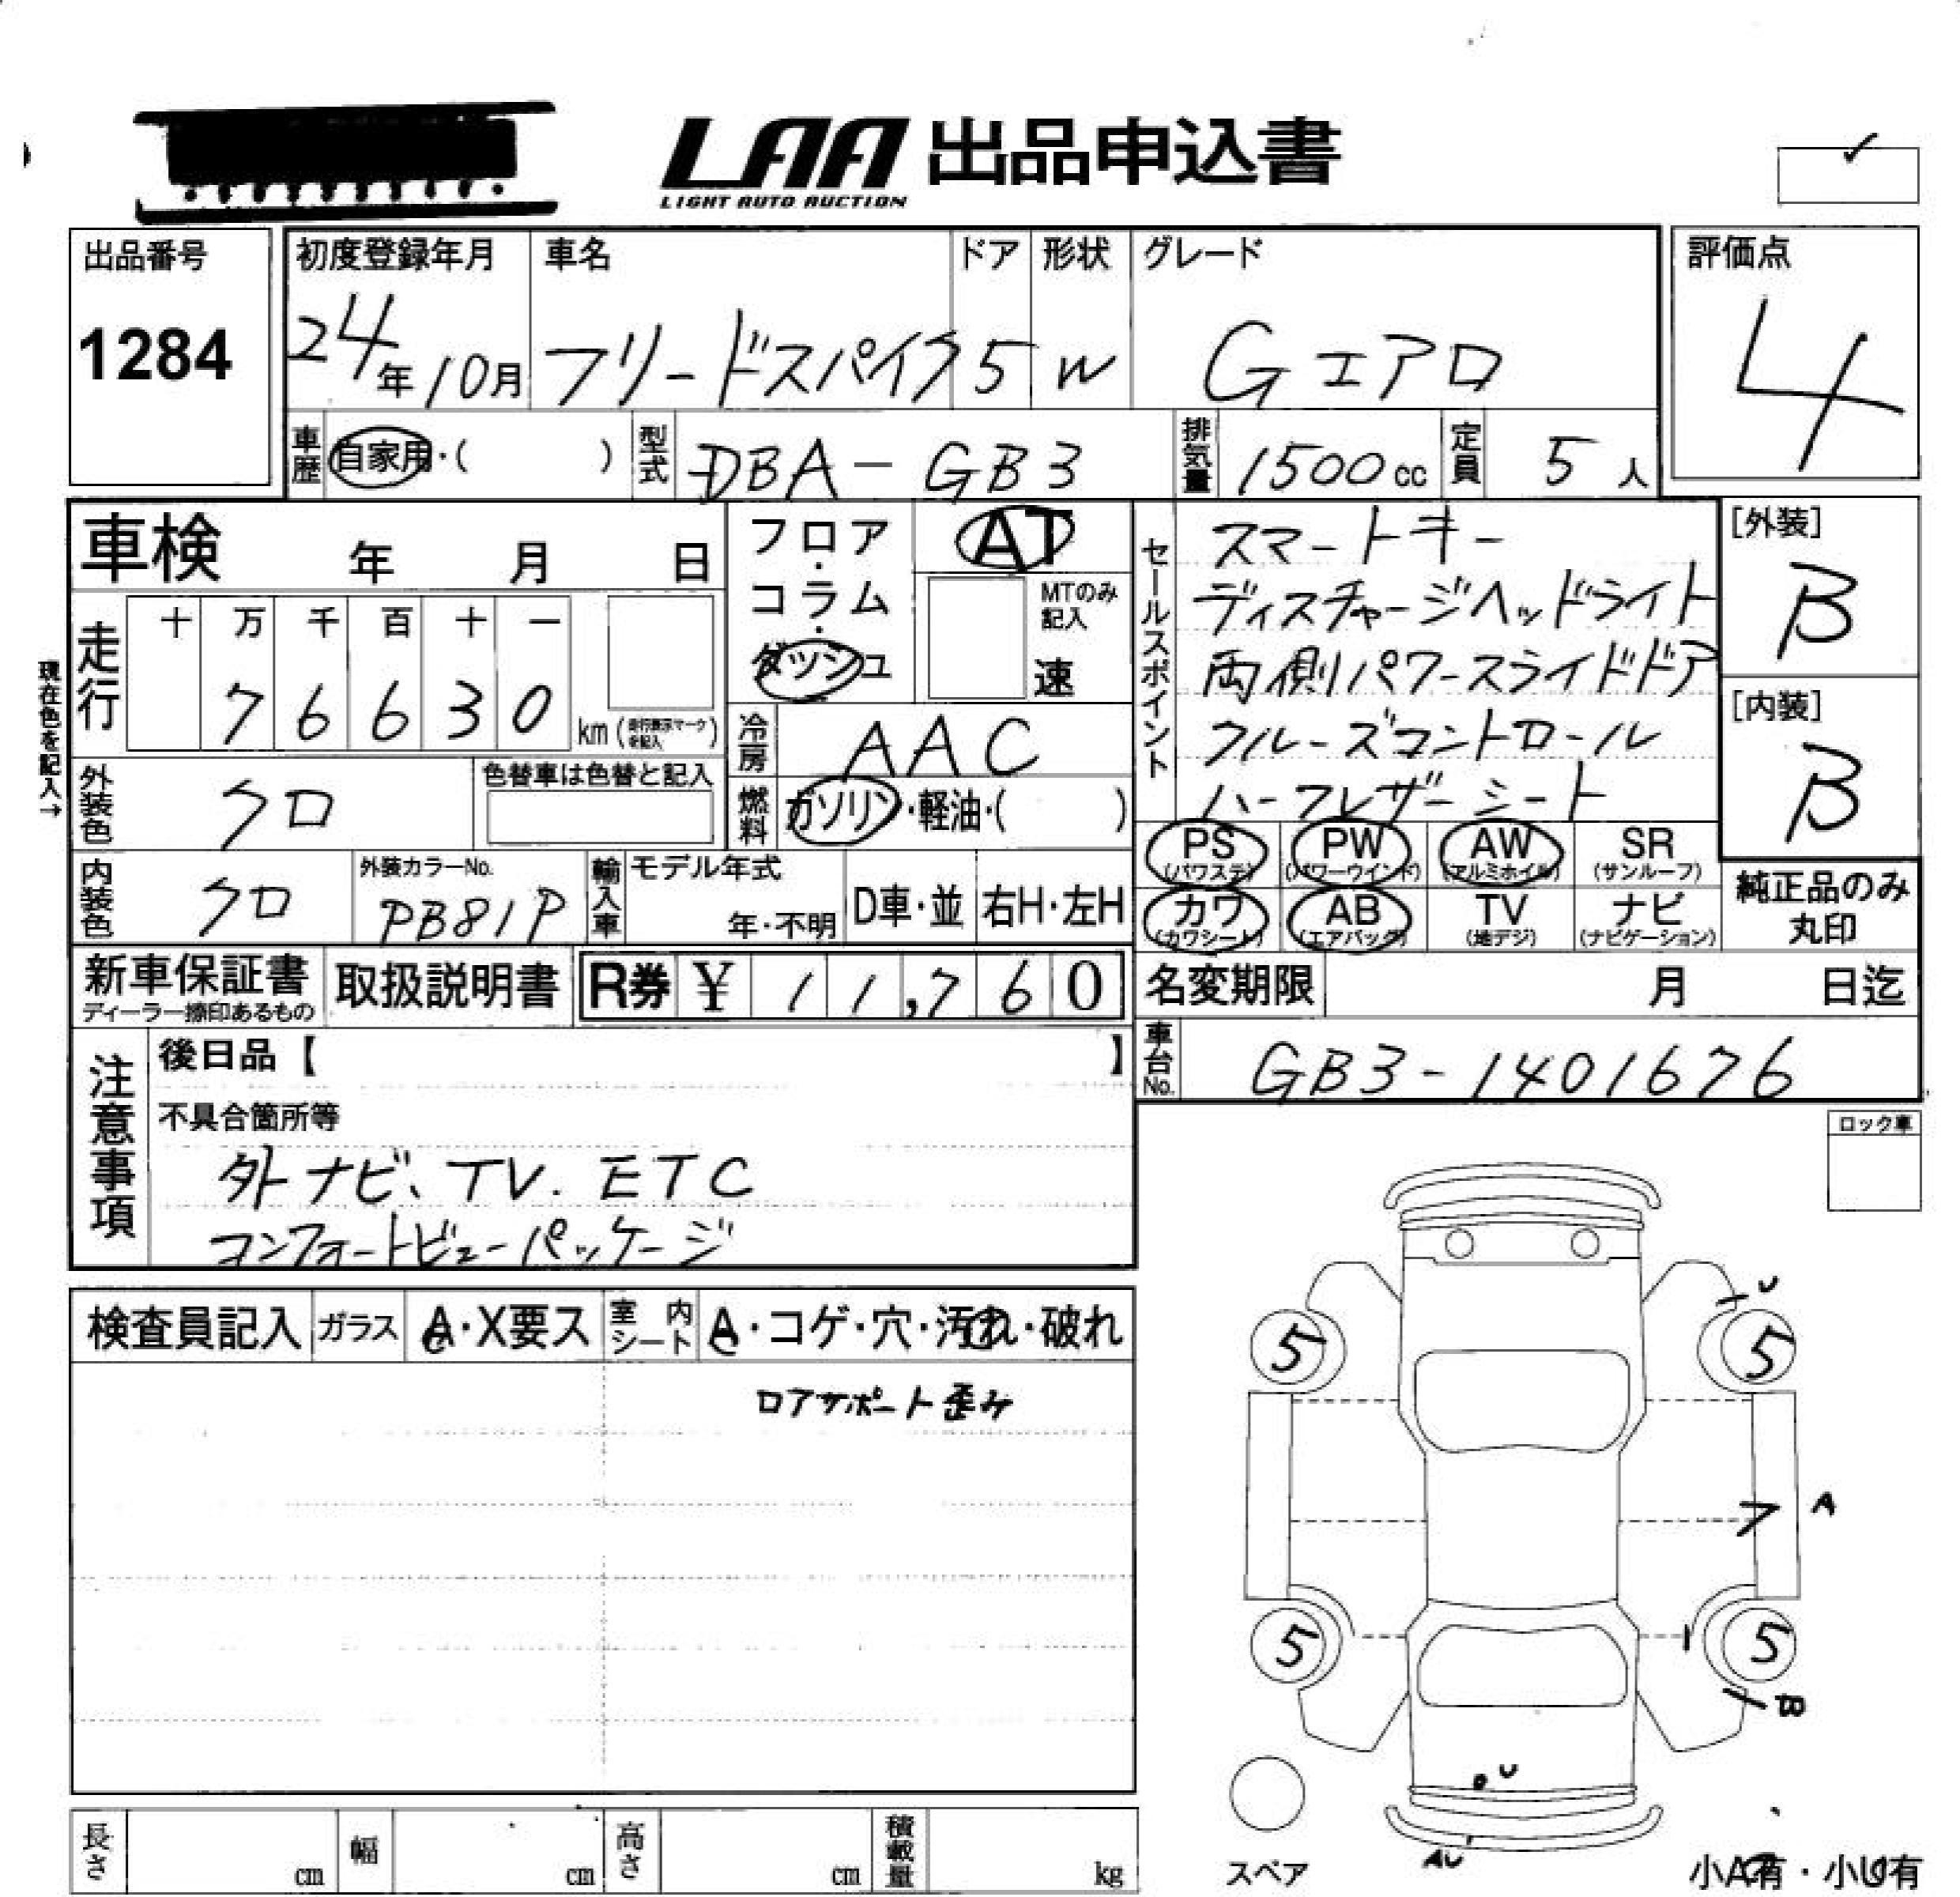 LAA 出品申込書
LIGHT AUTO AUCTION
出品番号
1284
初度登録年月
24年10月
車名
フリードスパイク
ドア
5
形状
W
グレード
Gエアロ
評価点
4
車歴 自家用・( )
型式 DBA-GB3
排気量 1500cc
定員 5人
車検 年 月 日
現在色を記入→
走行 十 万 千 百 十 一
7 6 6 3 0 km
フロア・コラム・ダッシュ
AT
MTのみ記入
速
冷房 AAC
燃料 ガソリン・軽油・( )
外装色 クロ
色替車は色替と記入
内装色 クロ
外装カラーNo.
PB81P
輸入車 モデル年式
年・不明
D車・並
右H・左H
セールスポイント
スマートキー
ディスチャージヘッドライト
両側パワースライドドア
クルーズコントロール
ハーフレザーシート
[外装]
B
[内装]
B
PS (パワステ)
PW (パワーウインド)
AW (アルミホイル)
SR (サンルーフ)
カワ (カワシート)
AB (エアバッグ)
TV (地デジ)
ナビ (ナビゲーション)
純正品のみ丸印
新車保証書
ディーラー捺印あるもの
取扱説明書
R券 ¥ 11,760
名変期限 月 日迄
車台No. GB3-1401676
注意事項
後日品【 】
不具合箇所等
外ナビ、TV.ETC
コンフォートビューパッケージ
ロック車
検査員記入
ガラス A・X要ス
室内シート A・コゲ・穴・汚れ・破れ
ロアサポート歪み
5
5
U
A
5
5
B
U
AU
スペア
小A有・小U有
長さ cm
幅 cm
高さ cm
積載量 kg